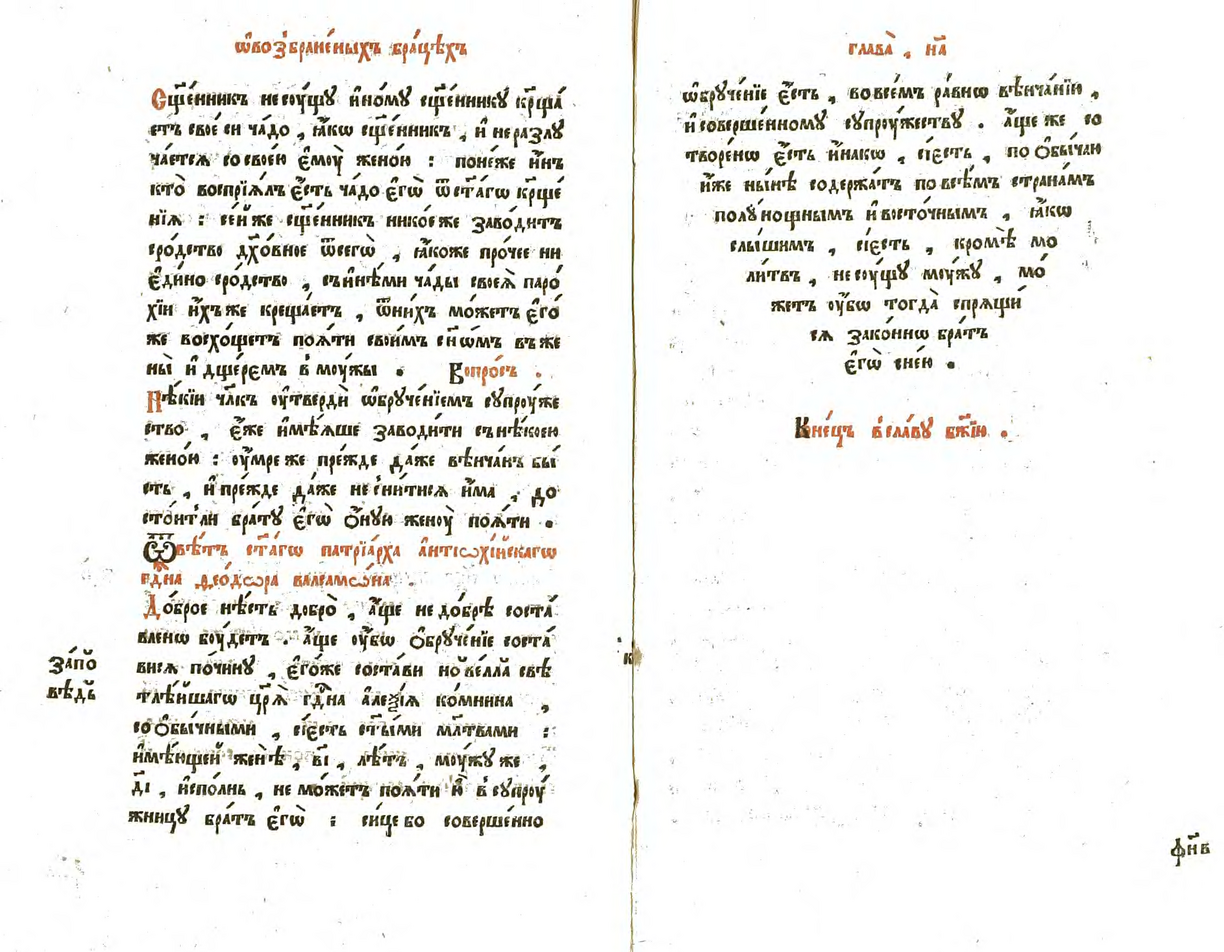 Ѡ҆возбране́ныхъ бра́цѣхъ
Сщ҃е́нникъ несꙋ́щꙋ и҆но́мꙋ сщ҃е́нникꙋ крⷭ҇ща́
етъ свое́ си ча́до , ꙗ҆́кѡ сщ҃е́нникъ , и҆ неразлꙋ
ча́ется со свое́ю є҆мꙋ̀ жено́ю : поне́же и҆́нъ
кто̀ воспрїѧ́лъ є҆́сть ча́до є҆гѡ̀ ѿст҃а́гѡ крⷭ҇ще́
нїѧ : се́йже сщ҃е́нникъ нико́еже заво́дитъ
сро́дство дх҃о́вное ѿсегѡ̀ , ꙗ҆́коже про́чее ни
є҆ди́но сро́дство , съи́нѣми ча́ды своеѧ̀ паро́
хїи и҆́хъже креща́етъ , ѿни́хъ мо́жетъ є҆го́
же восхо́щетъ поѧ́ти свои́мъ сн҃ѡ́мъ въ же
ны̀ и҆ дще́ремъ в мꙋ́жы . Вопро́съ .
Нѣ́кїи чл҃къ ᲂу҆твердѝ ѡ҆брꙋче́нїемъ сꙋпрꙋ́же
ство , є҆́же и҆мѣ́ѧше заводи́ти съ нѣ́коею
жено́ю : ᲂу҆́мре же пре́жде да́же вѣнча́нъ бы́
сть , и҆ пре́жде да́же не сни́тисѧ и҆́ма , до
сто́итли бра́тꙋ є҆гѡ̀ ѻ҆́нꙋю женꙋ̀ поѧ́ти .
Ѿвѣ́тъ ст҃а́гѡ патрїа́рха а҆нтїѡхі́йскагѡ
гдⷭ҇на ѳео́дѡра валсамѡ́на .
До́брое нѣ́сть добро̀ , а҆́ще не до́брѣ соста́
вленѡ бꙋ́детъ . а҆́ще ᲂу҆́бѡ ѻ҆брꙋче́нїе соста́
висѧ по чи́нꙋ , є҆го́же соста́ви нове́лла свѣ
тлѣ́йшагѡ цр҃ѧ̀ гдⷭ҇на а҆леѯі́ѧ ко́мнина ,
со ѻ҆бы́чными , сїе́сть ст҃ы́ми мл҃твами :
и҆мѣ́ющей женѣ̀ , в҃і , лѣ́тъ , мꙋ́жꙋ же ,
д҃і , и҆спо́лнь , не мо́жетъ поѧ́ти ю҆̀ в сꙋпрꙋ́
жницꙋ бра́тъ є҆гѡ̀ : си́це бо соверше́нно
За́по
вѣдь
глава̀ , н҃а
ѡ҆брꙋче́нїе є҆́сть , во все́мъ ра́внѡ вѣнча́нїю ,
и҆ соверше́нномꙋ сꙋпрꙋ́жествꙋ . а҆́ще же со
творе́нѡ є҆́сть и҆́накѡ , сїе́сть , по ѻ҆бы́чаю
и҆́же ны́нѣ содержа́тъ по всѣ́мъ страна́мъ
полꙋ́нощнымъ и҆ восто́чнымъ , ꙗ҆́кѡ
слы́шимъ , сїе́сть , кромѣ̀ мо
ли́твъ , не сꙋ́щꙋ мꙋ́жꙋ , мо́
жетъ ᲂу҆́бѡ тогда̀ спрѧщи́
сѧ зако́ннѡ бра́тъ
є҆гѡ̀ сне́ю .
Коне́цъ в сла́вꙋ бж҃їю .
ф҃нв